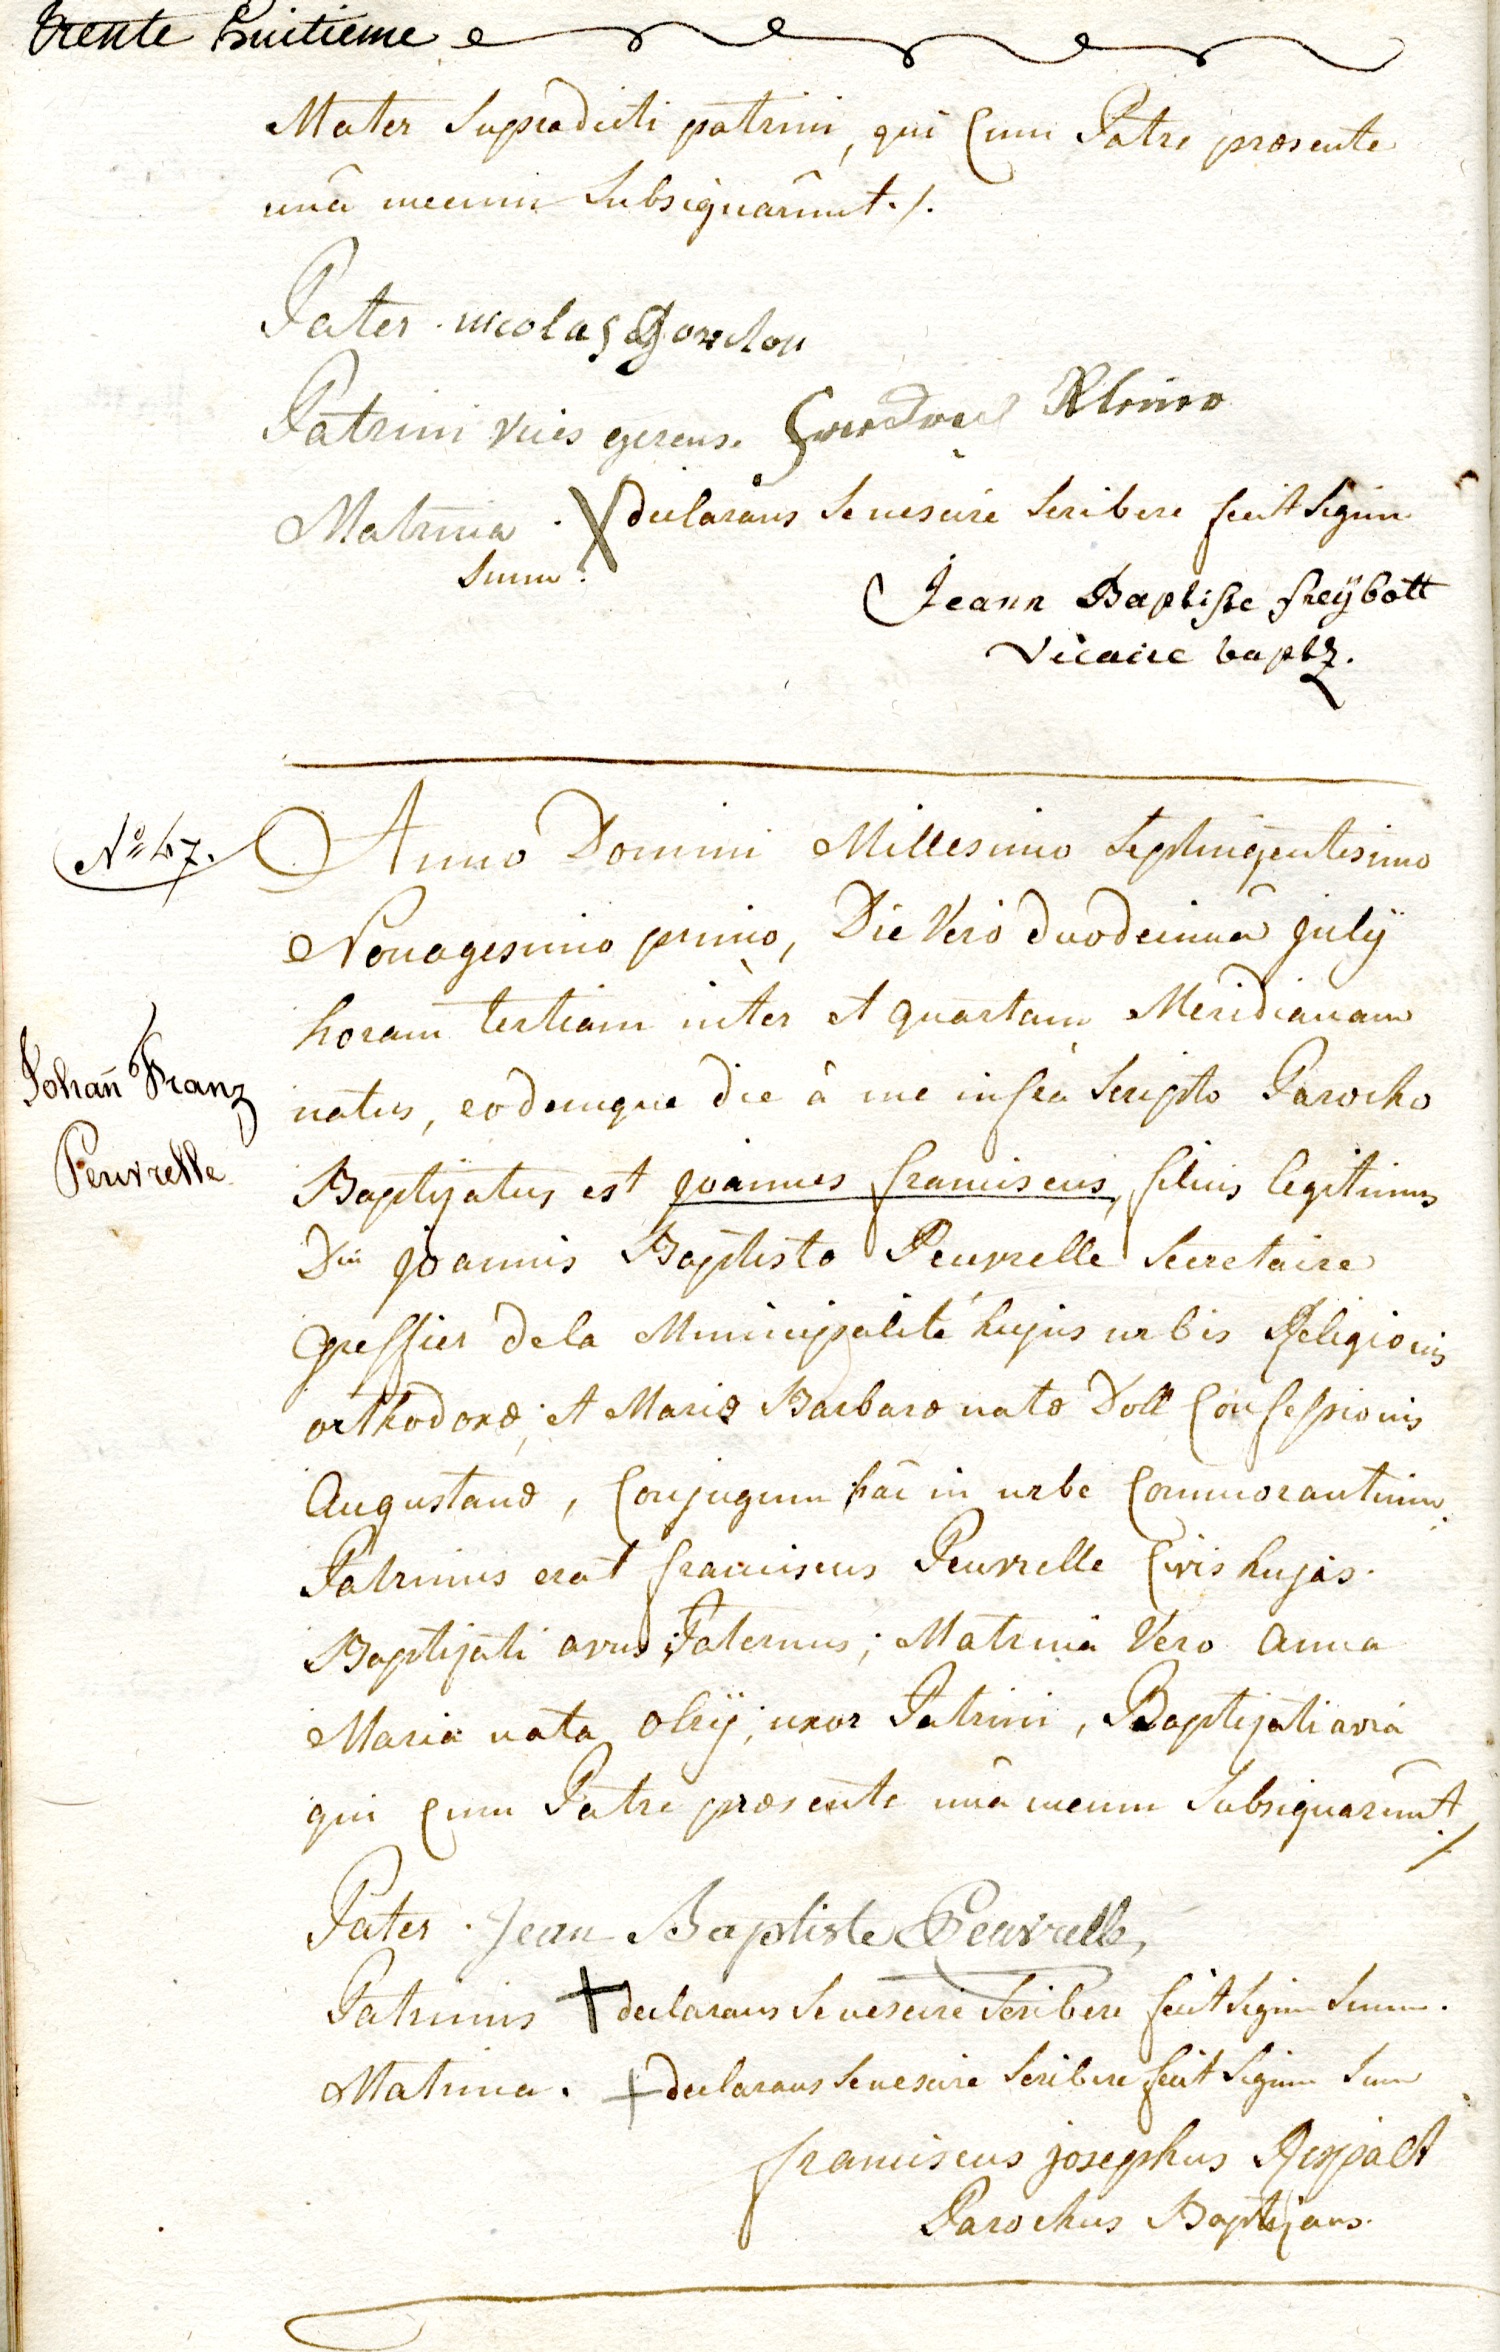 trente huitieme
Mater Supradicti patrini, qui Cum Patre præsente
unâ mecum Subsignârunt ./.
Pater . nicolas
Patrini vices gerens.
Matrina . X declarans se nescire scribere fecit signum
Suum.
Jeann Baptiste freÿbott
vicaire baptz.
Nº 47.
Anno Domini Millesimo Septingentesimo
Nonagesimo primo, Die Vero duodecimâ julÿ
horam tertiam inter et quartam Meridianam
natus, eodemque die â me infra Scripto Parocho
Johan̄ Franz
Peuvrelle
Baptizatus est joannes franciscus, filius legitimus
Dni joannis Baptistæ Peuvrelle Secretaire
greffier dela Municipalité hujus urbis Religionis
orthodoxæ, et Mariæ Barbaræ natæ Doll Confessionis
Augustanæ, Conjugum hâc in urbe Commorantium.
Patrinus erat franciscus Peuvrelle Civis hujas.
Baptizati avus Paternus; Matrina Vero anna
Maria nata olrÿ, uxor Patrini, Baptizati avia
qui Cum Patre præsente unâ mecum Subsignarûnt ./
Pater . Jean Baptiste Peuvrelle,
Patrinus + declarans se nescire scribere fecit signum suum.
Matrina. + declarans se nescire scribere fecit signum suum
franciscus josephus
Parochus Baptizans.